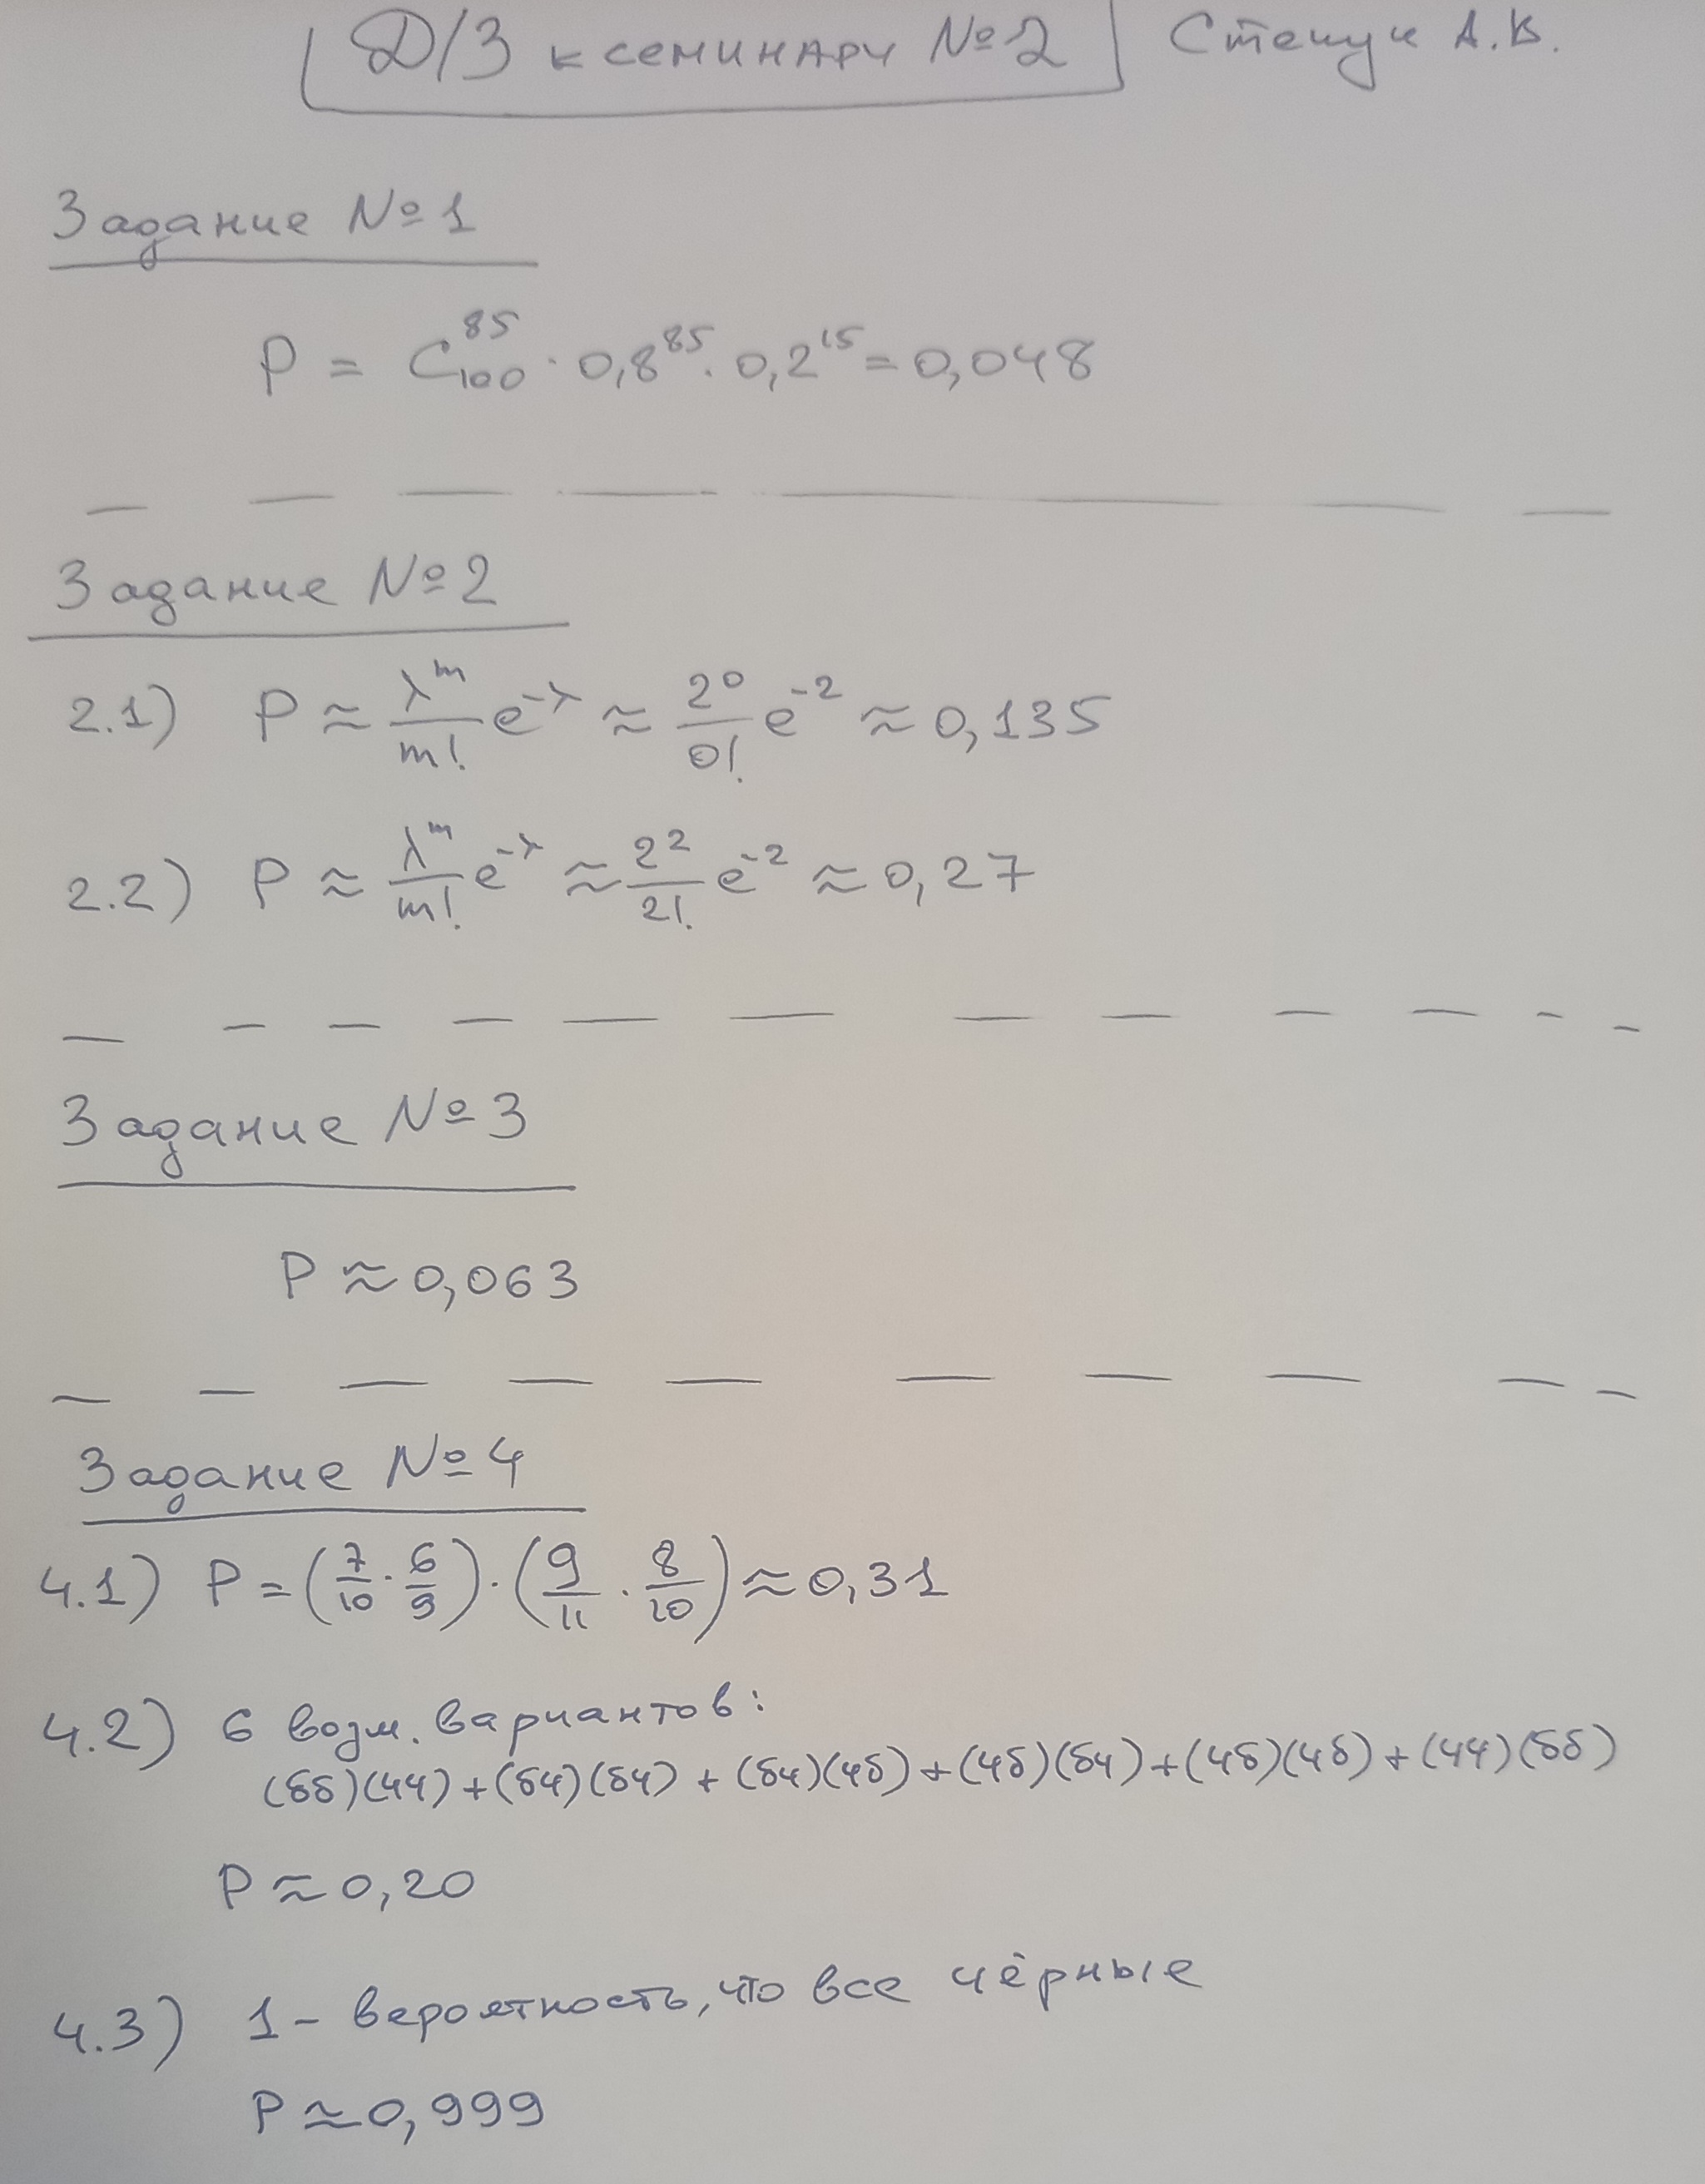 Д/З к семинару №2 А.В.
Задание №1
P = C₁₀₀⁸⁵ · 0,8⁸⁵ · 0,2¹⁵ = 0,048
Задание №2
2.1) P ≈ λᵐ/m! e⁻λ ≈ 2⁰/0! e⁻² ≈ 0,135
2.2) P ≈ λᵐ/m! e⁻λ ≈ 2²/2! e⁻² ≈ 0,27
Задание №3
P ≈ 0,063
Задание №4
4.1) P = (7/10 · 6/9) · (9/11 · 8/10) ≈ 0,31
4.2) 6 возм. вариантов:
(бб)(чч) + (бч)(бч) + (бч)(чб) + (чб)(бч) + (чб)(чб) + (чч)(бб)
P ≈ 0,20
4.3) 1 - вероятность, что все чёрные
P ≈ 0,999